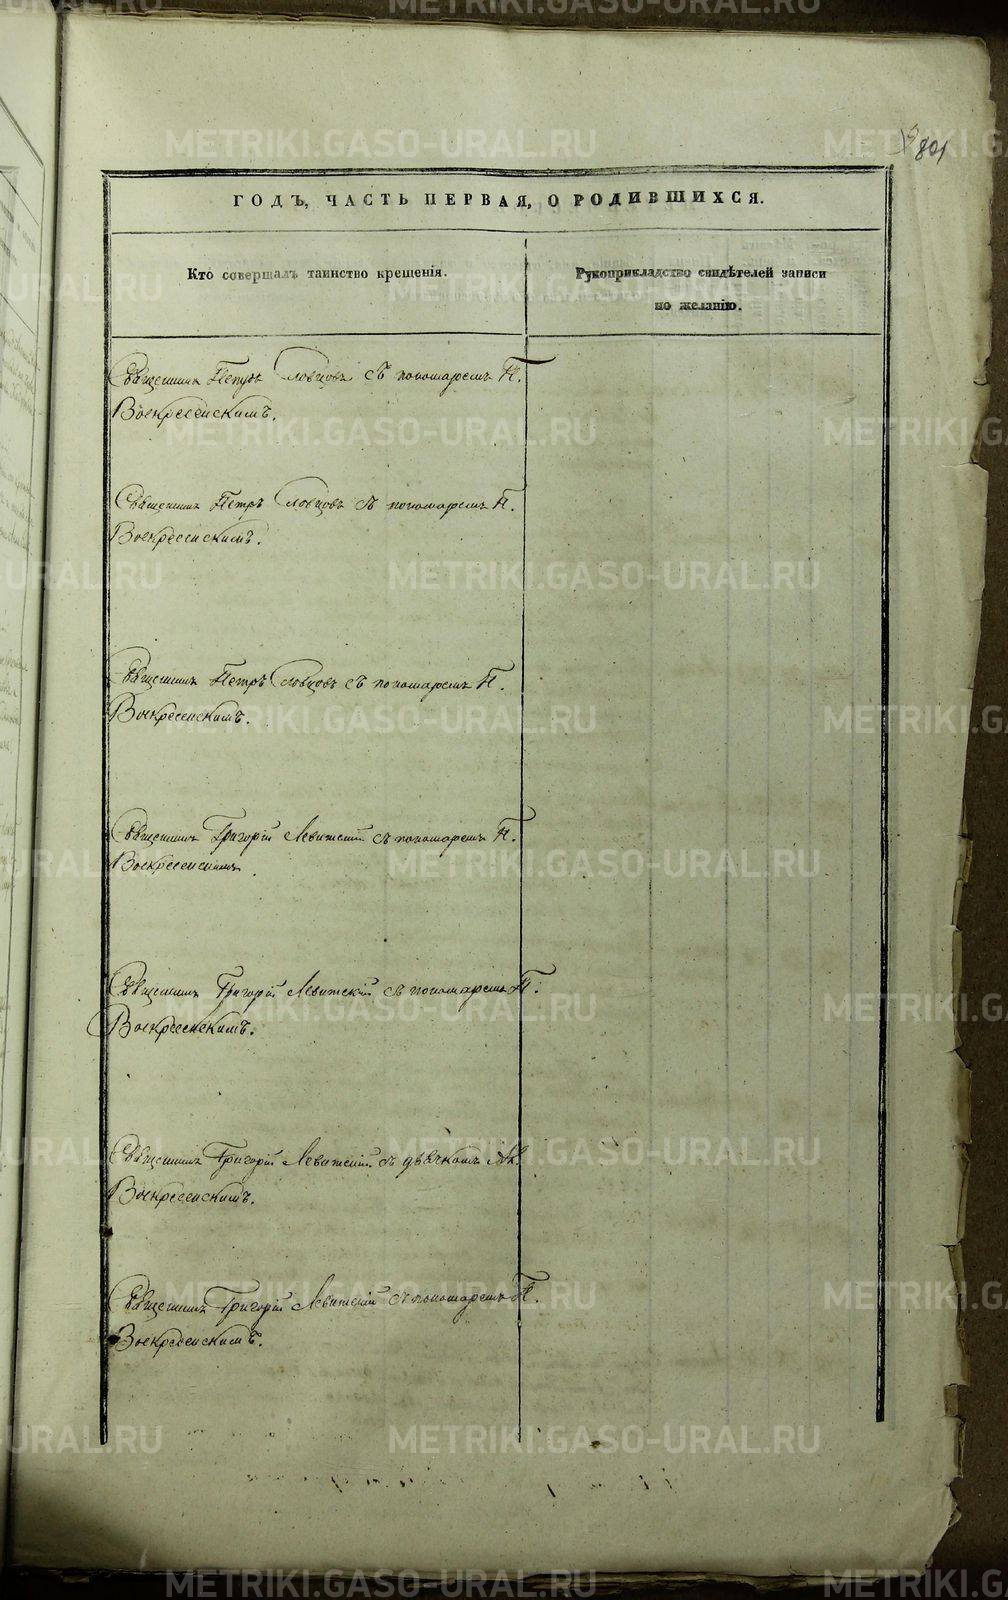 801
ГОДЪ, ЧАСТЬ ПЕРВАЯ, О РОДИВШИХСЯ.
Кто совершалъ таинство крещенія.
Рукоприкладство свидѣтелей записи
по желанію.
Священникъ Петръ Словцовъ съ пономаремъ П.
Воскресенскимъ.
Священникъ Петръ Словцовъ съ пономаремъ П.
Воскресенскимъ.
Священникъ Петръ Словцовъ съ пономаремъ П.
Воскресенскимъ.
Священникъ Григорій Левитскій съ пономаремъ П.
Воскресенскимъ.
Священникъ Григорій Левитскій съ пономаремъ П.
Воскресенскимъ.
Священникъ Григорій Левитскій съ дьячкомъ Ал.
Воскресенскимъ.
Священникъ Григорій Левитскій съ пономаремъ П.
Воскресенскимъ.
METRIKI.GASO-URAL.RU